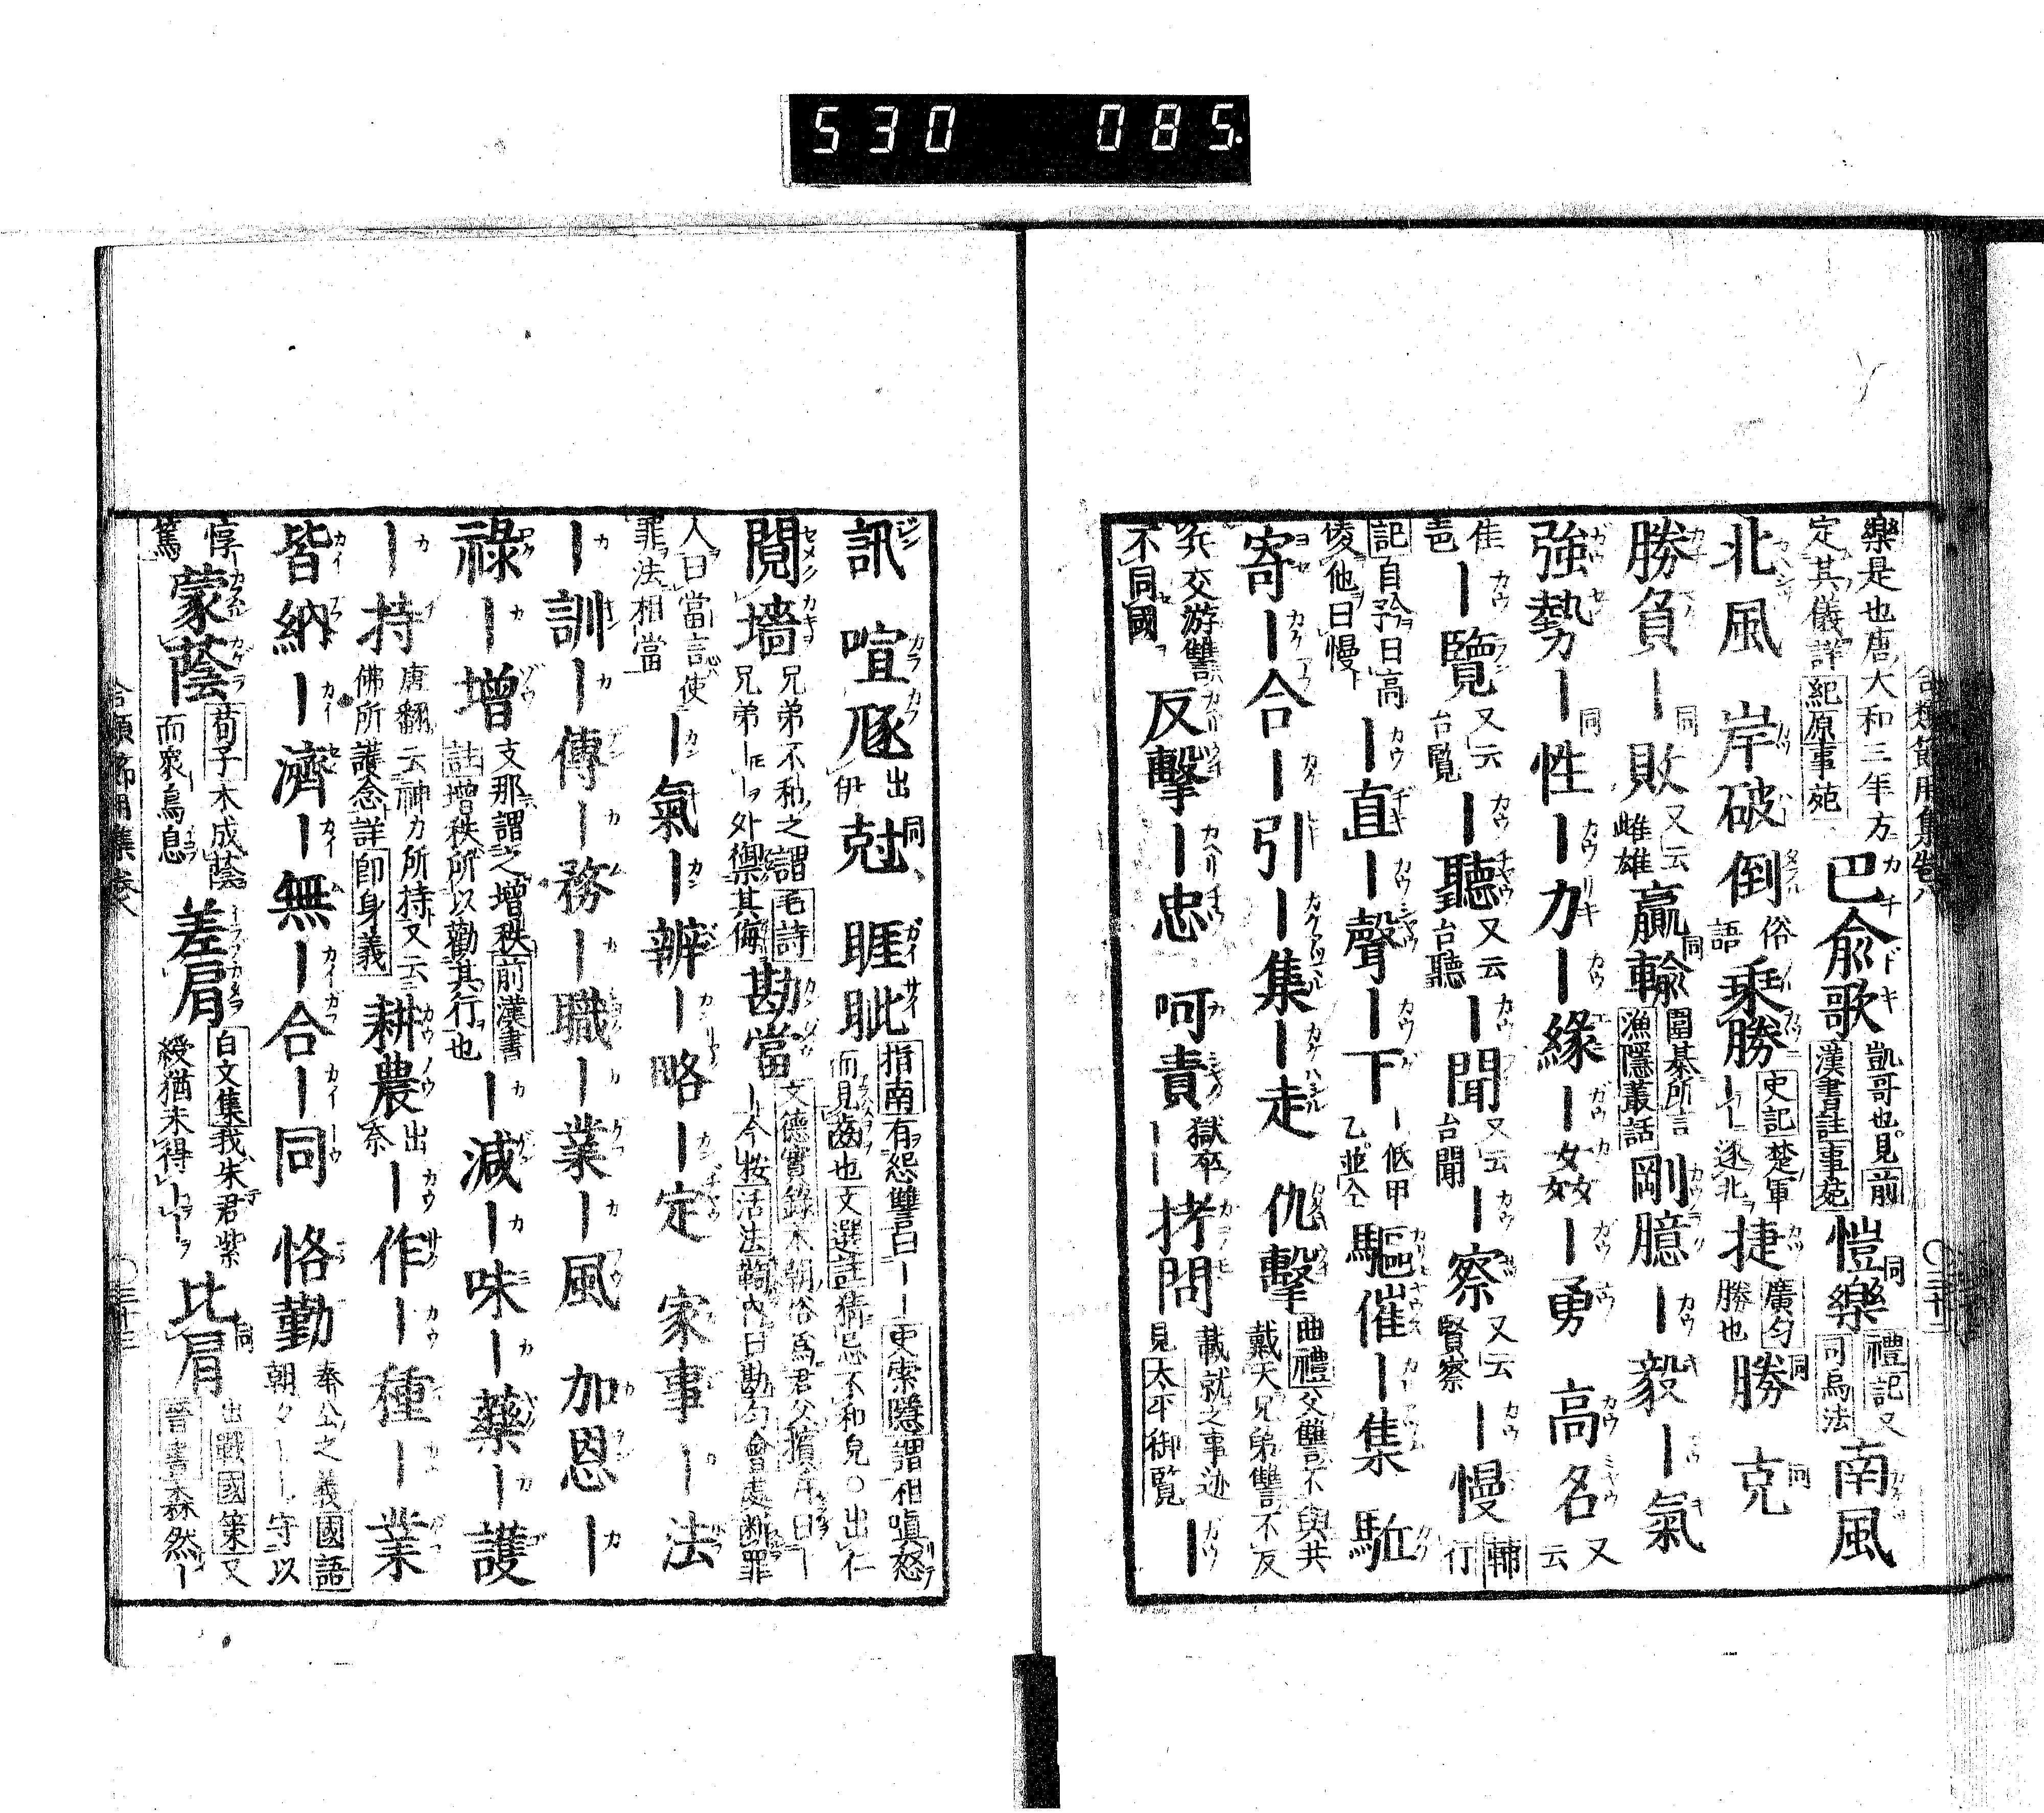 530 085.
樂是也唐大和三年方
定其儀詳紀原事苑
巴兪歌 凱哥也見前漢書註事苑 愷樂 禮記又司馬法 南風
北風 岸破倒 俗語 乘勝 史記楚軍ーー逐北 捷 廣匀勝也 勝 克
勝負ー敗 又云雌雄 贏輸 圍碁所言漁隱叢話 剛臆ー毅ー氣
強勢ー性ー力ー緣ー姦ー勇 高名 又云
佳
ー覽 又云台覧 ー聽 又云台聽 ー聞 又云台聞 ー察 又云賢察 ー慢
記自矜曰高
倰他曰慢 ー直ー聲ー下 ー低甲乙並仝 驅催ー集 駈
寄ー合ー引ー集ー走 仇擊 曲禮父讐不與共戴天兄弟讐不反
兵交游讐
不同國 反擊ー忠 呵責 獄卒ーー 拷問 載就之事迹見太平御覧 ー
訊 喧豗 出伊 尅 睚眦 指南有怨讐曰ーー史索隱謂相嗔怒而見齒也文選註猜忌不和皃○出仁
鬩墻 兄弟不和之謂毛詩兄弟ー于ー外禦其侮 勘當
人曰當言使
罪法相當 ー氣ー辨ー略ー定 家事ー法
ー訓ー傳ー務ー職ー業ー風 加恩ー
祿ー增 支那謂之增秩前漢書註增秩所以勸其行也 ー減ー味ー藥ー護
ー持 唐翻云神力所持又云佛所護念詳即身義 耕農 出奈 ー作ー種ー業
皆納ー濟ー無ー合ー同 恪勤 奉公之義國語朝夕ーー守以
惇
篤 蒙蔭 荀子木成蔭而衆鳥息 差肩 白文集我朱君紫綬猶未得ーー 比肩 出戰國策又晉書森然ー